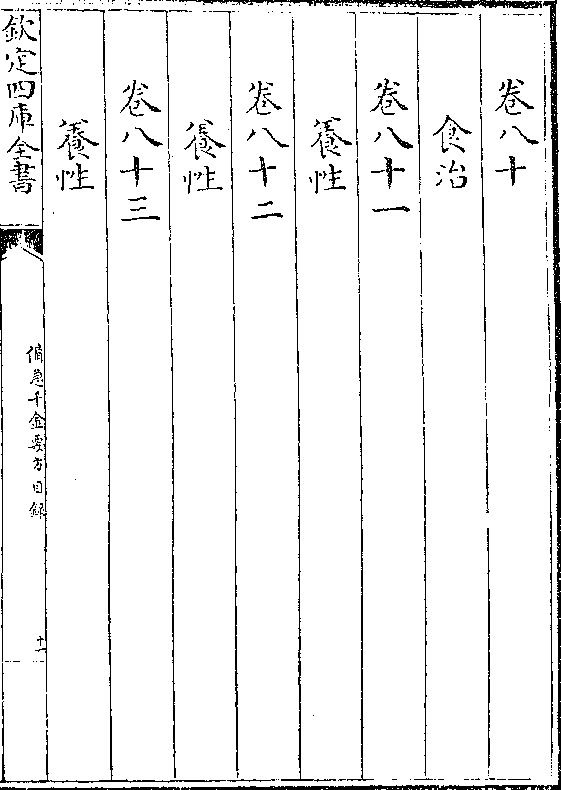 卷八十
食治
卷八十一
養性
卷八十二
養性
卷八十三
養性
欽定四庫全書
備急千金要方目録
十一